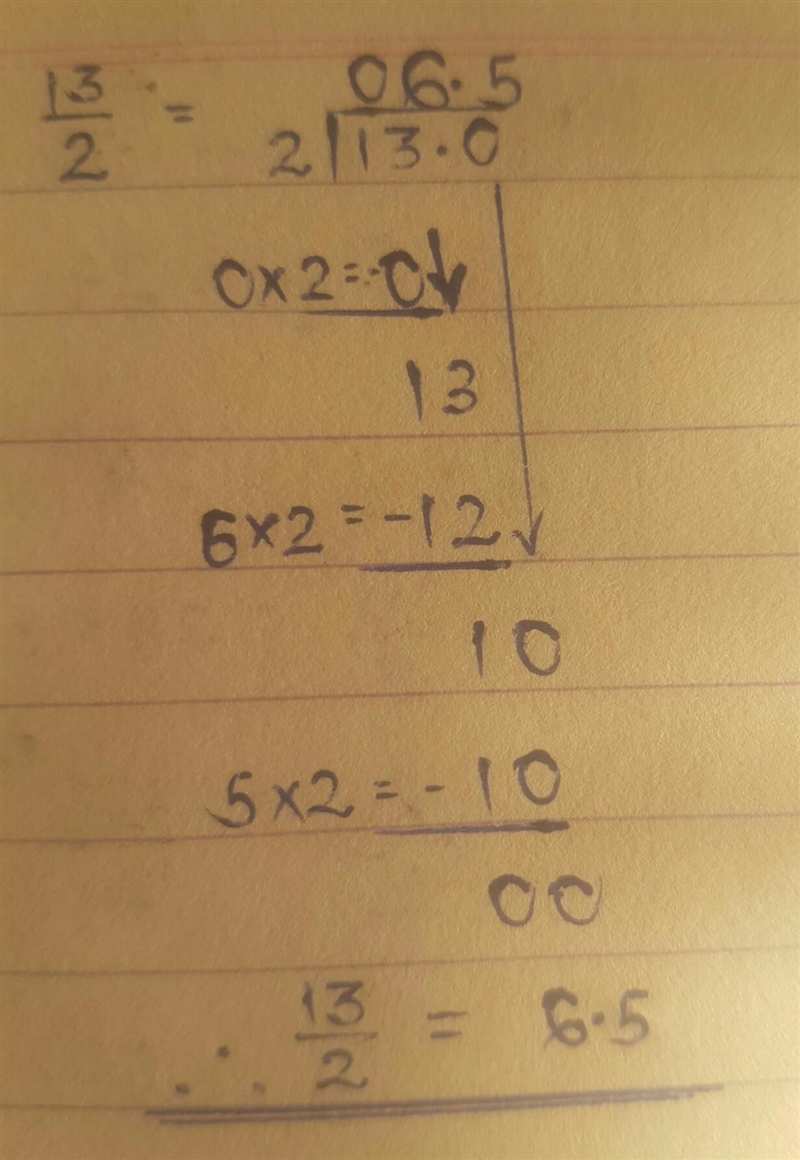 13/2 = 06.5
2 | 13.0
0×2 = -0↓
13
6×2 = -12
10
5×2 = -10
00
∴ 13/2 = 6.5